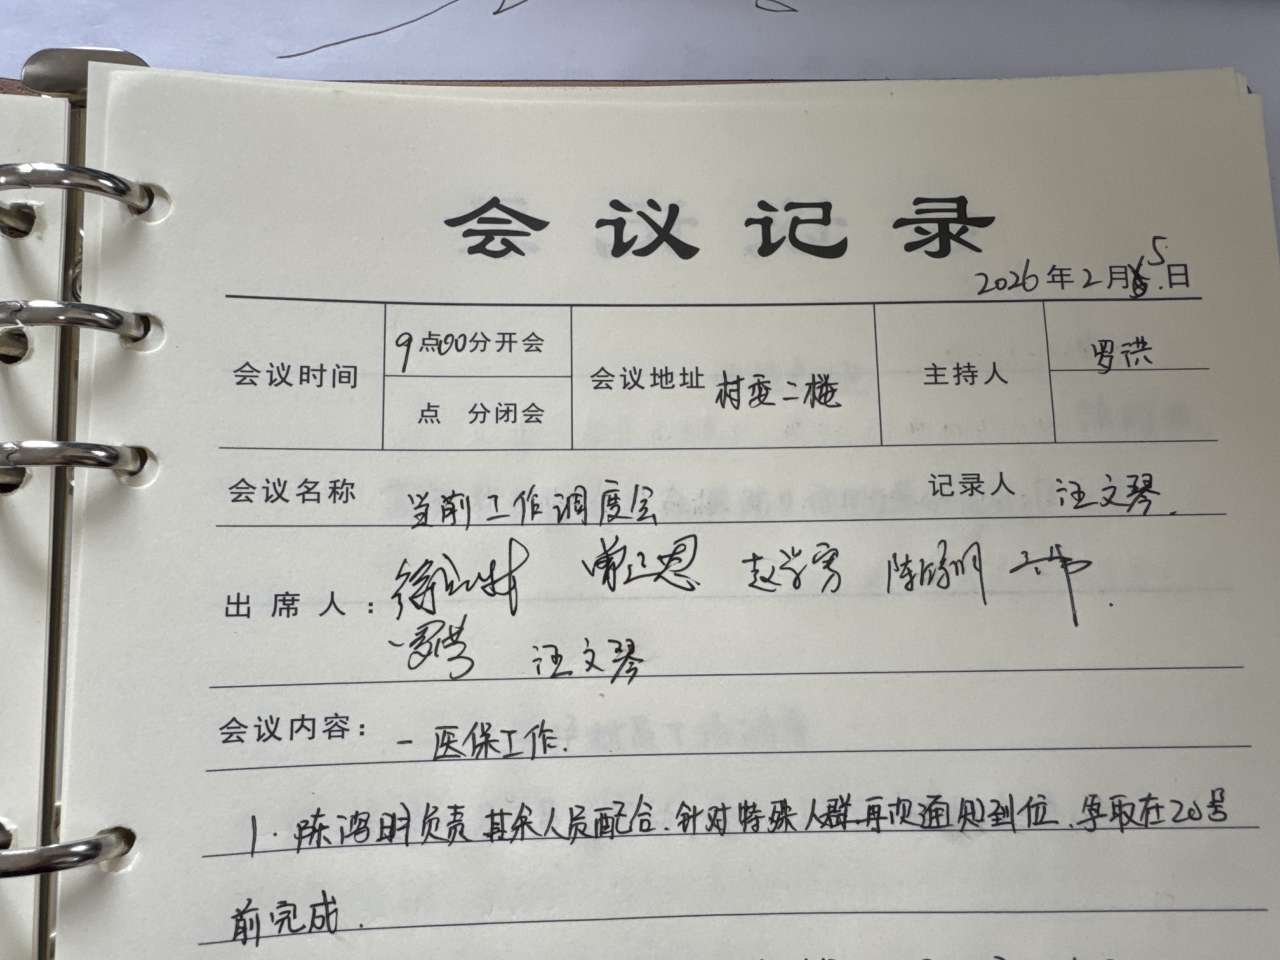 会议记录
2026年2月5日
会议时间 9点00分开会 会议地址 村委二楼 主持人 罗洪
点 分闭会
会议名称 当前工作调度会 记录人 汪文琴.
出席人: 赵学勇 陈鸿明
罗洪 汪文琴
会议内容: 一 医保工作.
1. 陈鸿明负责 其余人员配合.针对特殊人群再次通知到位.争取在20号
前完成.